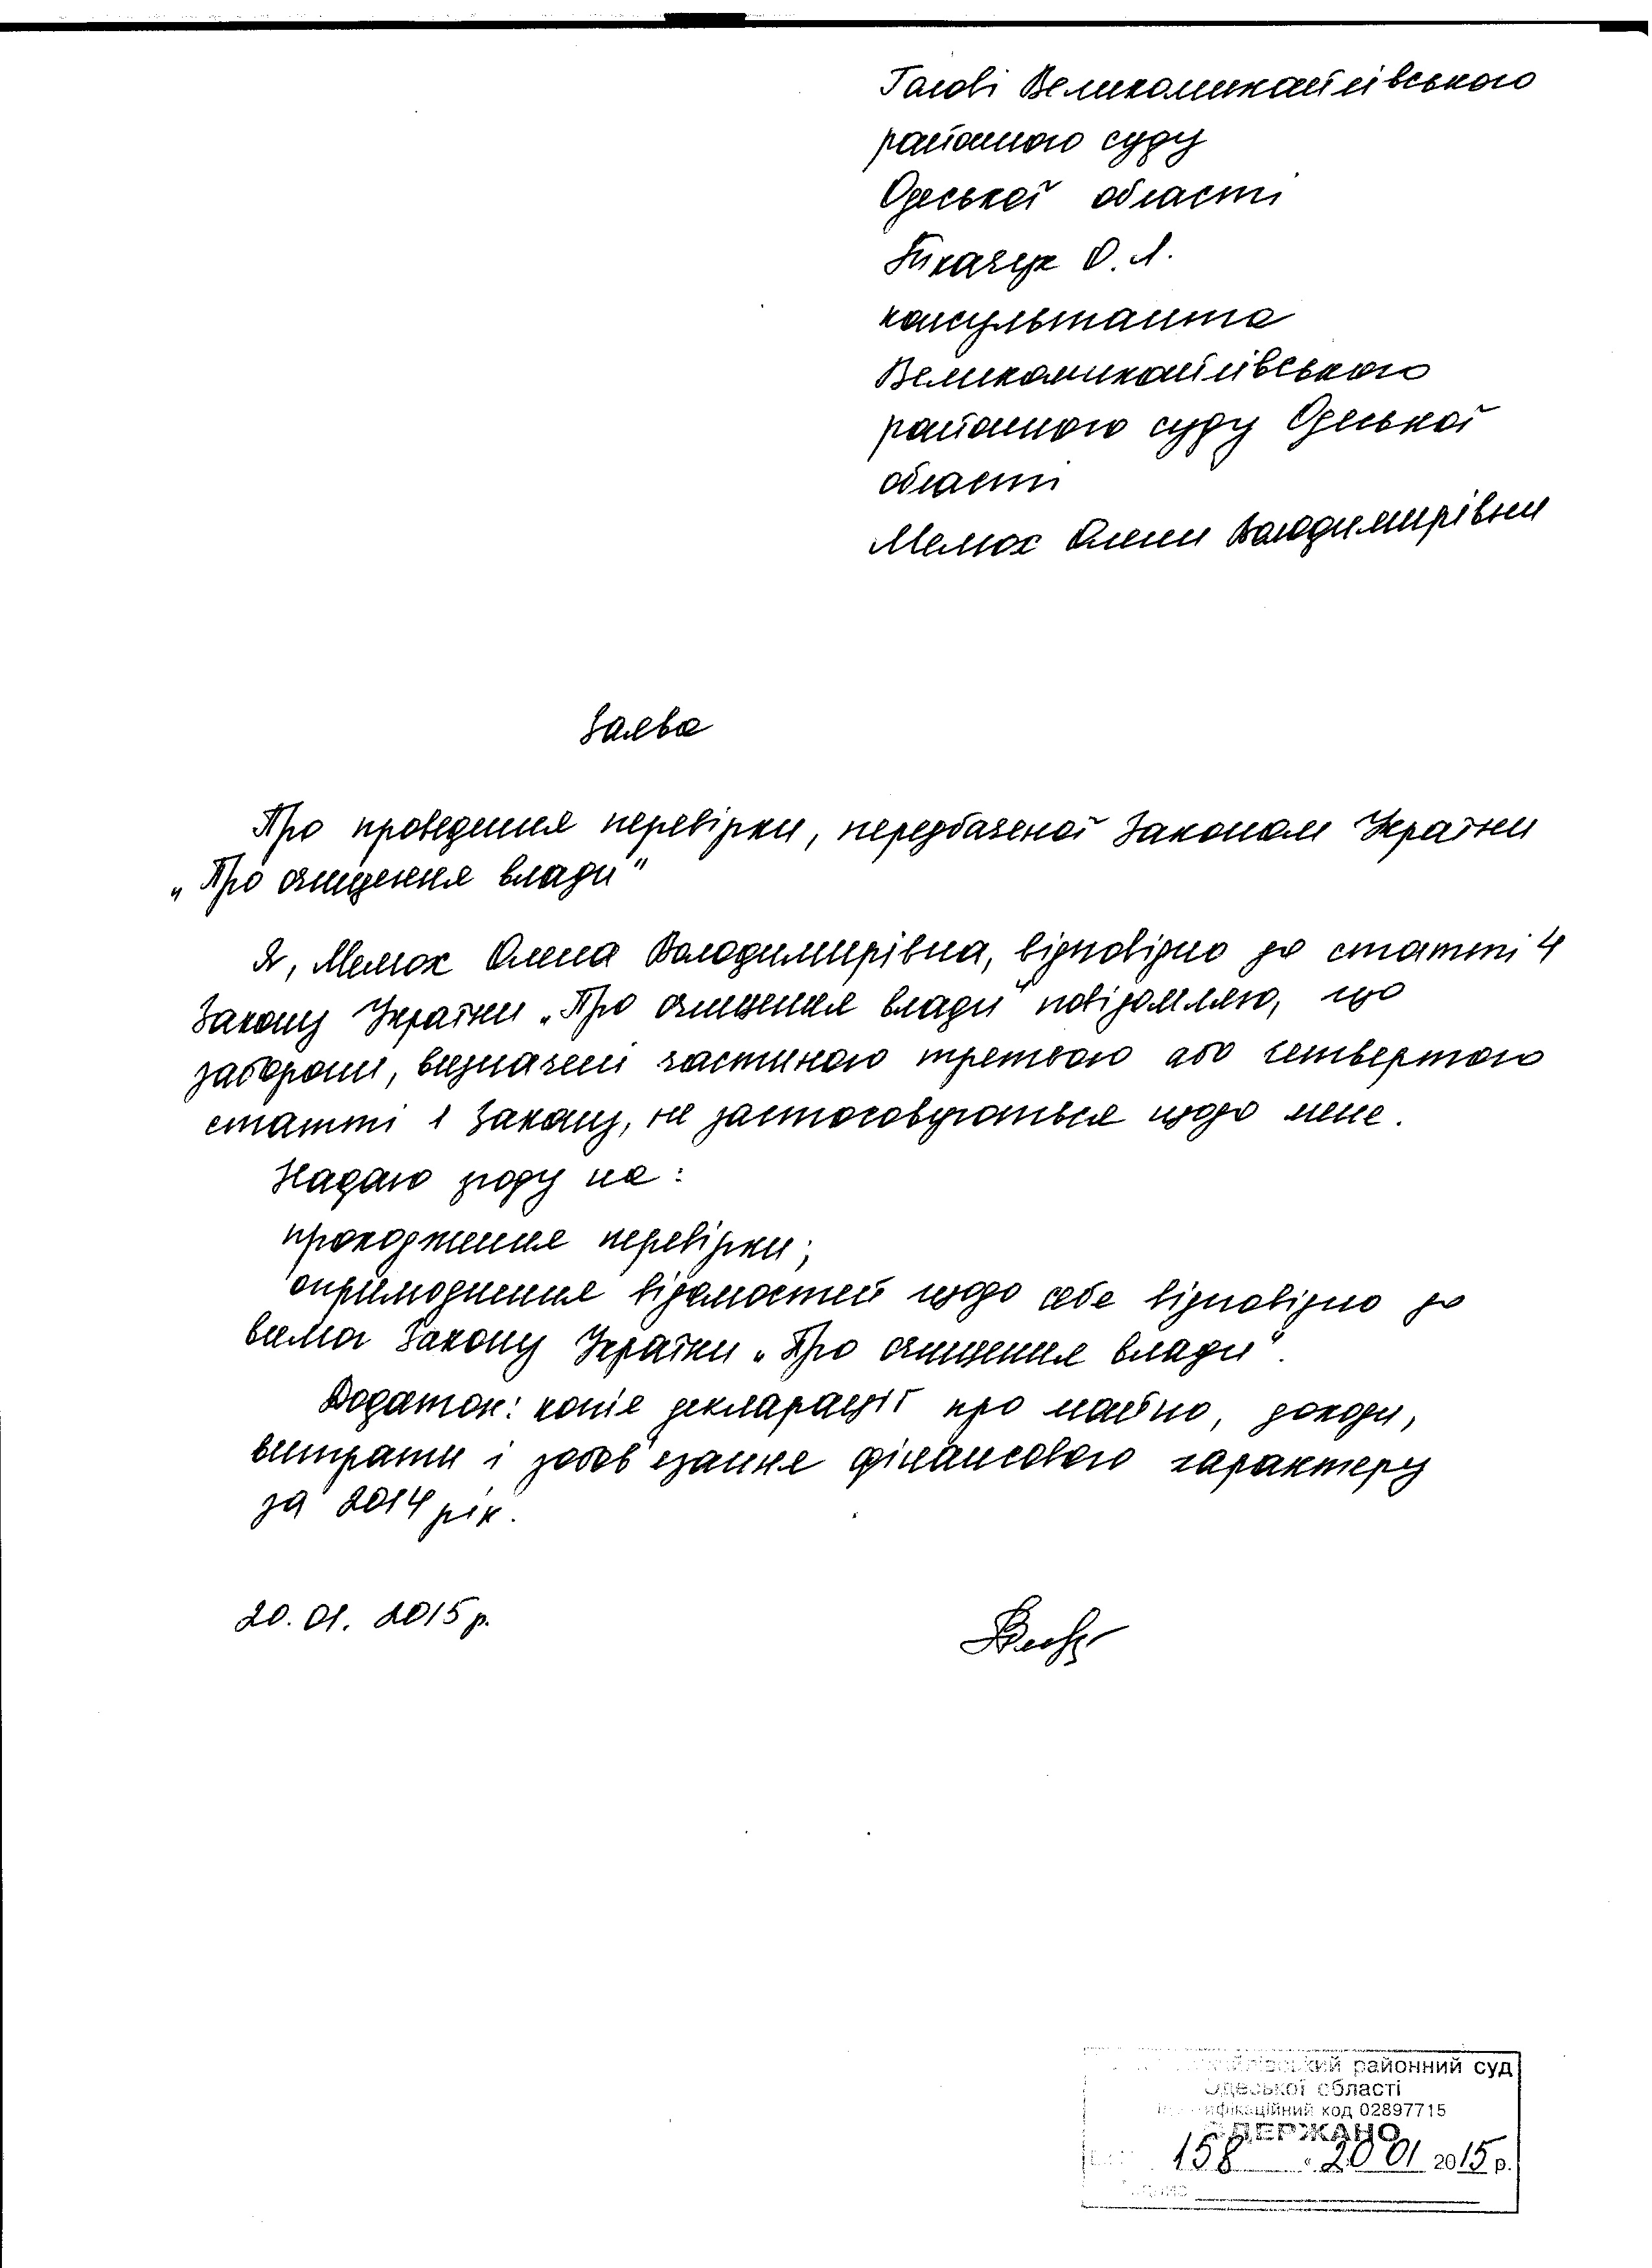 Голові Великомихайлівського
районного суду
Одеської області
Ткачук О.Л.
консультанта
Великомихайлівського
районного суду Одеської
області
Мелюх Олени Володимирівни
Заява
Про проведення перевірки, передбаченої Законом України
„Про очищення влади"
Я, Мелюх Олена Володимирівна, відповідно до статті 4
Закону України „Про очищення влади" повідомляю, що
заборони, визначені частиною третьою або четвертою
статті 1 Закону, не застосовуються щодо мене.
Надаю згоду на:
проходження перевірки;
оприлюднення відомостей щодо себе відповідно до
вимог Закону України „Про очищення влади".
Додаток: копія декларації про майно, доходи,
витрати і зобов'язання фінансового характеру
за 2014 рік.
20.01.2015 р.
районний суд
Одеської області
код 02897715
ОДЕРЖАНО
158 20 01 2015 р.